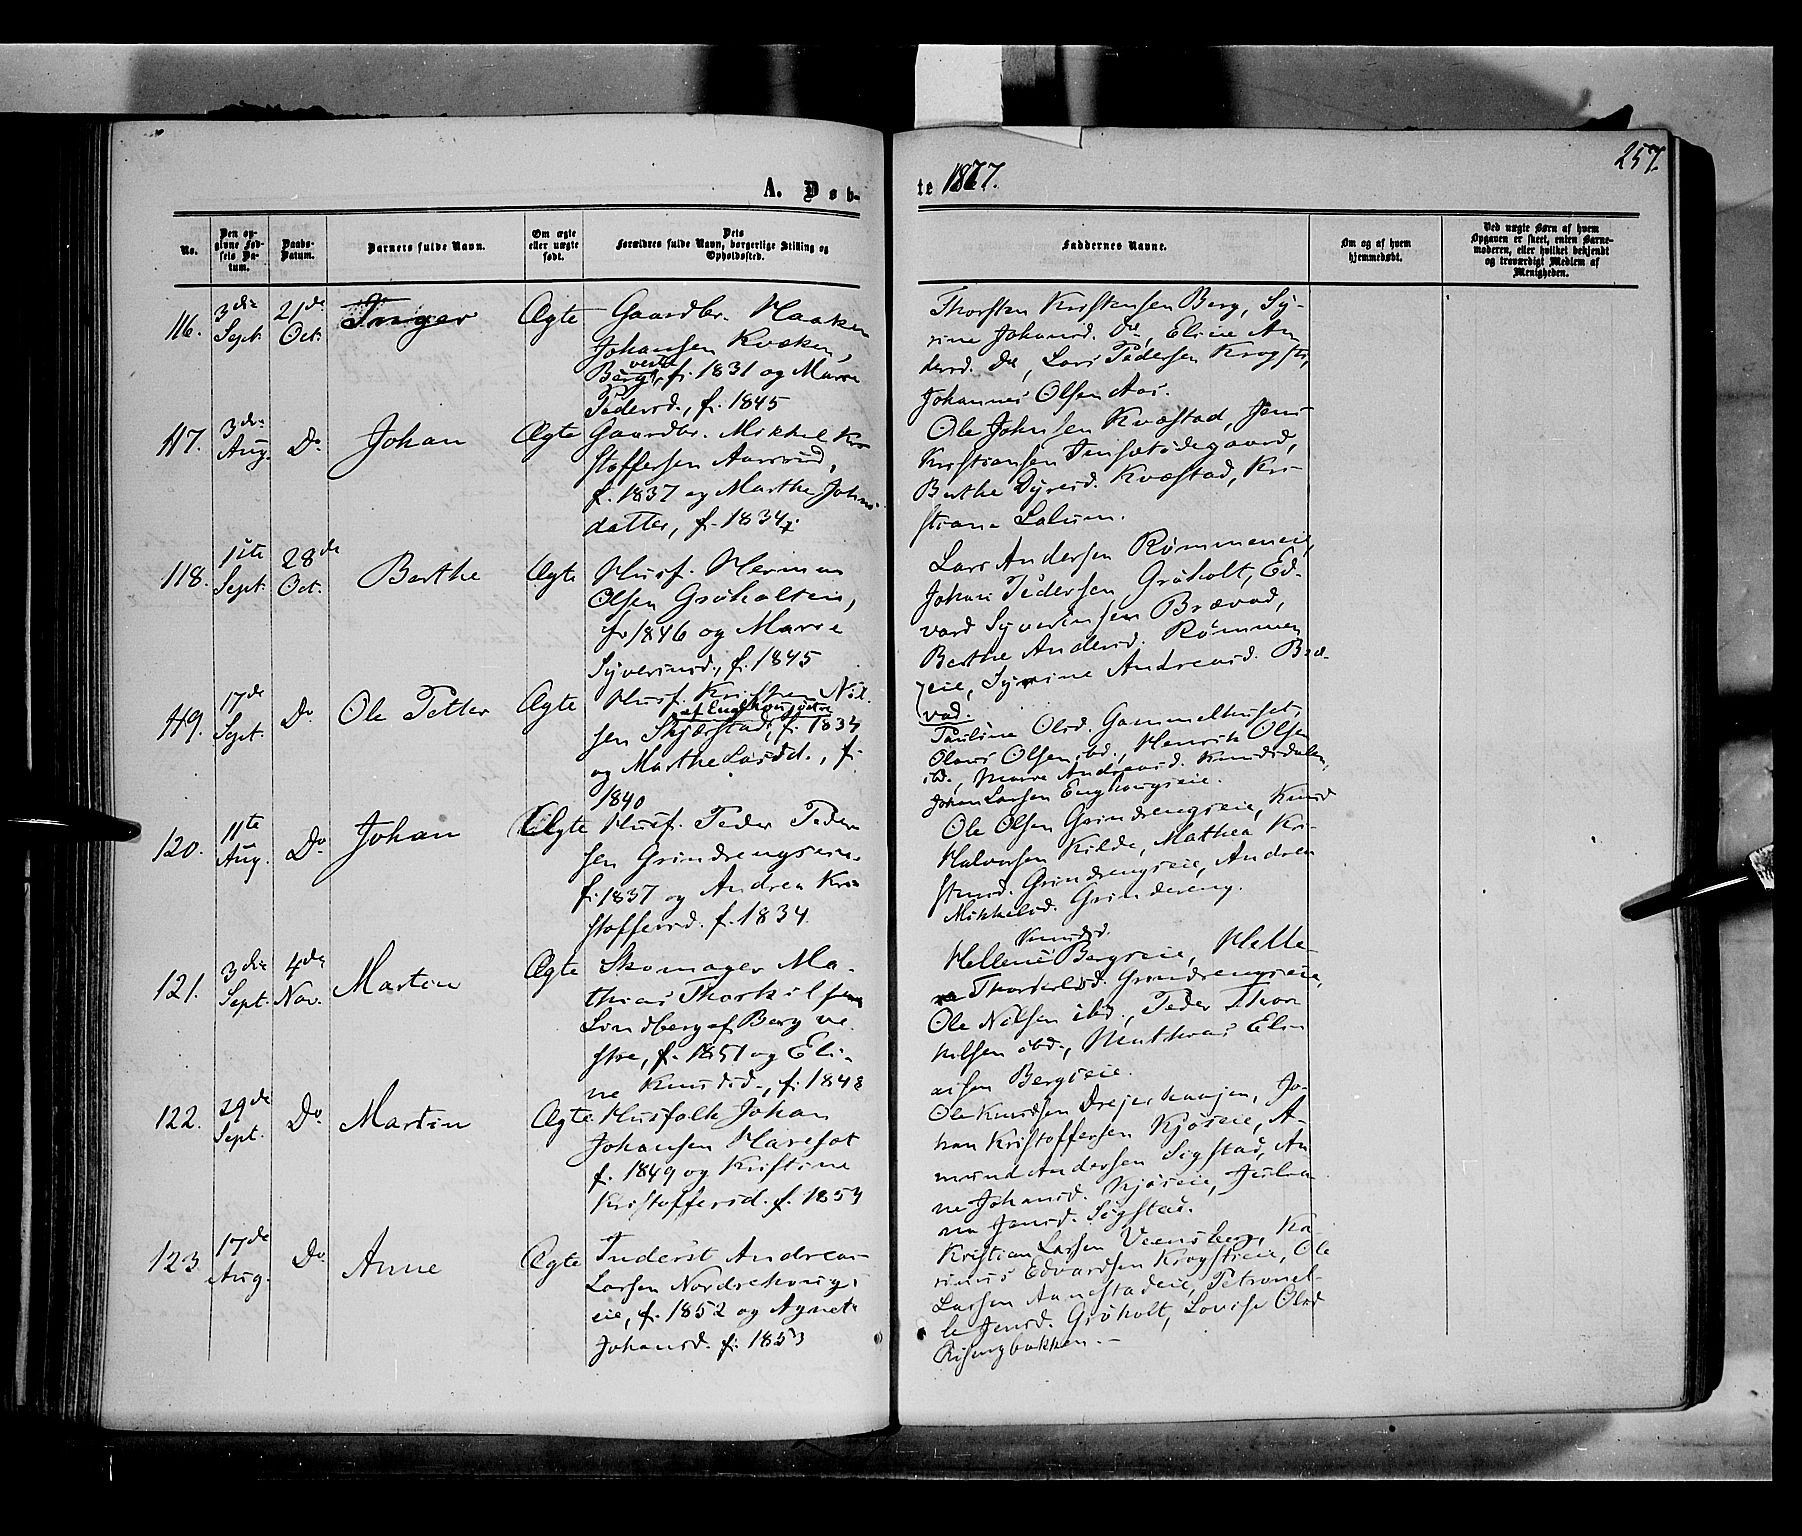 257.
A. Døb-
te 1877.
No.
Den op-
givne Fød-
sels Da-
tum.
Daabs-
Datum.
Barnets fulde Navn.
Om ægte
eller uægte
født.
Dets
Forældres fulde Navn, borgerlige Stilling og
Opholdssted.
Faddernes Navne.
Om og af hvem
hjemmedøbt.
Ved uægte Børn af hvem
Opgaven er skeet, enten Barne-
moderen, eller hvilket bekjendt
og troværdigt Medlem af
Menigheden.
116.
3die
Sept.
21de
Oct.
Inger
Ægte
Gaardbr. Haaken
Johansen Kvæken,
Berg vestre f. 1831 og Marre
Pedersd., f. 1845
Thorsten Kristensen Berg, Sy-
rine Johansd. Do, Eline An-
dersd. Do, Lars Pedersen
Johannes Olsen Aas.
117.
3die
Aug.
Do
Johan
Ægte
Gaardbr. Mikkel Kri-
stoffersen
f. 1837 og Marthe Johns-
datter, f. 1834
Ole Johnsen Kvæstad, Jens
Kristiansen
Berthe Dyresd. Kvæstad, Kri-
stiane Lalum.
118.
1ste
Sept.
28de
Oct.
Berthe
Ægte
Husf. Herman
Olsen Gröholteie,
f. 1846 og Marre
Syverinsd., f. 1845
Lars Andersen Rømmeneie,
Johan Pedersen Gröholt, Ed-
vard Syverinsen Brævad,
Berthe Andersd. Rømmen
eie, Syrine Andreasd. Bræ-
vad.
119.
17de
Sept.
Do
Ole Petter
Ægte
Husf. Kristen Nil-
sen Skjærstad, f. 1834
og Marthe Larsd., f.
1840
Pauline Olsd. Gammelhuset,
Olaus Olsen ibd., Henrik Olsen
ibd., Marre Andreasd. Knudsdalen,
Johan Larsen Enghougseie.
120.
11te
Aug.
Do
Johan
Ægte
Husf. Peder Peder-
sen Grindrengseie
f. 1837 og Andrea Kri-
stoffersd. f. 1834.
Ole Olsen Grindrengseie, Knud
Halvorsen Kilde, Mathea Kri-
stensd. Grindrengseie, Andrea
Mikkelsd. Grindereng.
121.
3die
Sept.
4de
Nov.
Martin
Ægte
Skomager Ma-
thias Thorkilsen
Lindberg af Berg ve-
stre, f. 1851 og Eli-
ne Knudsd., f. 1848
Knudsd.
Hellene Bergseie, Helle-
Grindrengseie,
Ole Nilsen ibd., Peder Thor-
kilsen ibd., Mathias Eli-
asen Bergseie.
122.
29de
Sept.
Do
Martin
Ægte
Husfolk Johan
Johansen Haresat
f. 1849 og Kristine
Kristoffersd. f. 1854
Ole Knudsen Drejerhaugen, Jo-
han Kristoffersen Kjøseie, A-
mund Andersen Sigstad, An-
ne Johansd. Kjøseie, Julia-
na Jensd. Sigstad.
123.
17de
Aug.
Do
Anne
Ægte
Inderst Andreas
Larsen Nordrehougs-
eie, f. 1852 og Agnete
Johansd. f. 1853
Kristian Larsen Veensberg, Ka-
rinus Edvardsen Krogstieie, Ole
Larsen Aanestadeie, Petronel-
le Jensd. Gröholt, Lovise Olsd
Risingbakken.